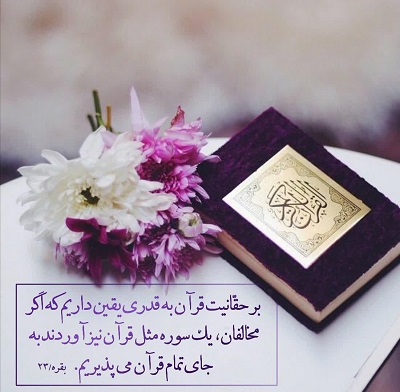 القرآن الكريم
بر حقّانیت قرآن به قدری یقین داریم که اگر
مخالفان، یک سوره مثل قرآن نیز آوردند به
جای تمام قرآن می پذیریم. بقره/۲۳